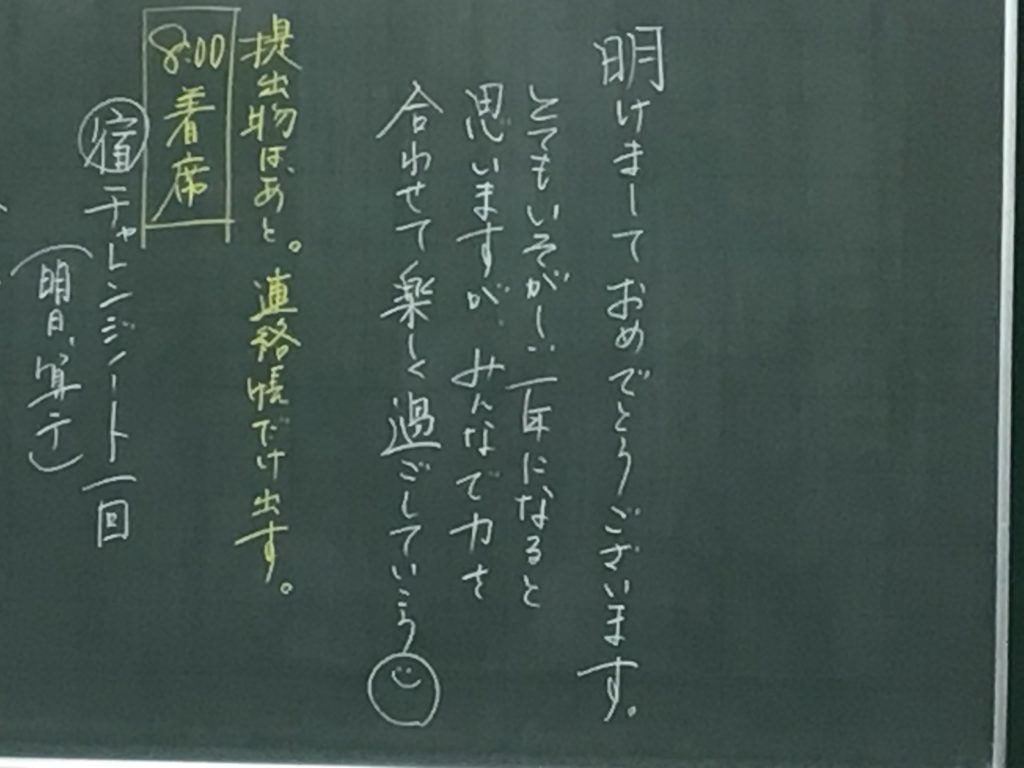 明けましておめでとうございます。
とてもいそがしい一年になると
思いますが、みんなで力を
合わせて楽しく過ごしていこう
提出物は、あと。連絡帳だけ出す。
8:00着席
宿一チャレンジシート一回
(明日、算テ)